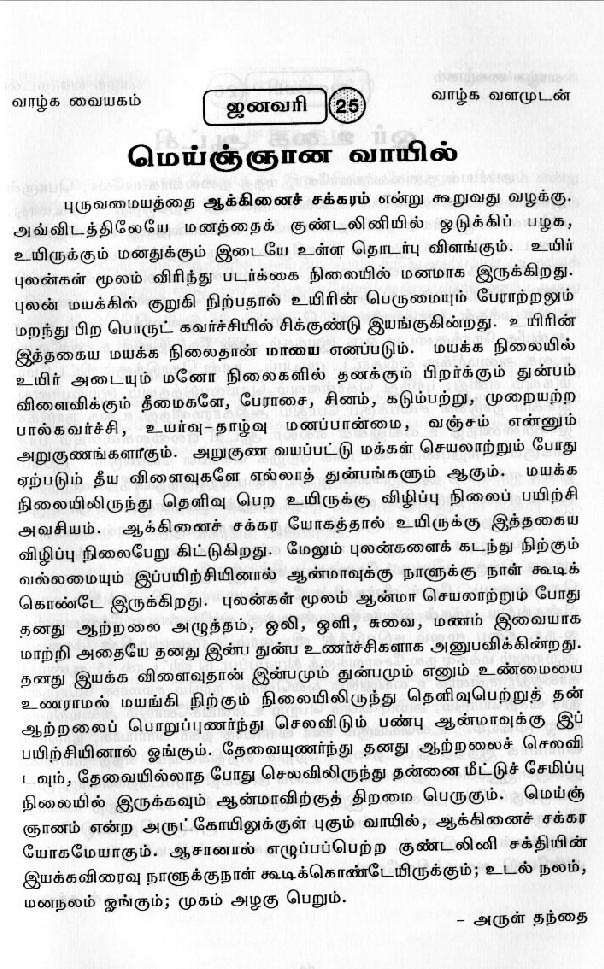 வாழ்க வையகம்
ஜனவரி 25
வாழ்க வளமுடன்
மெய்ஞ்ஞான வாயில்
புருவமையத்தை ஆக்கினைச் சக்கரம் என்று கூறுவது வழக்கு.
அவ்விடத்திலேயே மனத்தைக் குண்டலினியில் ஒடுக்கிப் பழக,
உயிருக்கும் மனதுக்கும் இடையே உள்ள தொடர்பு விளங்கும். உயிர்
புலன்கள் மூலம் விரிந்து படர்க்கை நிலையில் மனமாக இருக்கிறது.
புலன் மயக்கில் குறுகி நிற்பதால் உயிரின் பெருமையும் பேராற்றலும்
மறந்து பிற பொருட் கவர்ச்சியில் சிக்குண்டு இயங்குகின்றது. உயிரின்
இத்தகைய மயக்க நிலைதான் மாயை எனப்படும். மயக்க நிலையில்
உயிர் அடையும் மனோ நிலைகளில் தனக்கும் பிறர்க்கும் துன்பம்
விளைவிக்கும் தீமைகளே, பேராசை, சினம், கடும்பற்று, முறையற்ற
பால்கவர்ச்சி, உயர்வு-தாழ்வு மனப்பான்மை, வஞ்சம் என்னும்
அறுகுணங்களாகும். அறுகுண வயப்பட்டு மக்கள் செயலாற்றும் போது
ஏற்படும் தீய விளைவுகளே எல்லாத் துன்பங்களும் ஆகும். மயக்க
நிலையிலிருந்து தெளிவு பெற உயிருக்கு விழிப்பு நிலைப் பயிற்சி
அவசியம். ஆக்கினைச் சக்கர யோகத்தால் உயிருக்கு இத்தகைய
விழிப்பு நிலைபேறு கிட்டுகிறது. மேலும் புலன்களைக் கடந்து நிற்கும்
வல்லமையும் இப்பயிற்சியினால் ஆன்மாவுக்கு நாளுக்கு நாள் கூடிக்
கொண்டே இருக்கிறது. புலன்கள் மூலம் ஆன்மா செயலாற்றும் போது
தனது ஆற்றலை அழுத்தம், ஒலி, ஒளி, சுவை, மணம் இவையாக
மாற்றி அதையே தனது இன்ப துன்ப உணர்ச்சிகளாக அனுபவிக்கின்றது.
தனது இயக்க விளைவுதான் இன்பமும் துன்பமும் எனும் உண்மையை
உணராமல் மயங்கி நிற்கும் நிலையிலிருந்து தெளிவுபெற்றுத் தன்
ஆற்றலைப் பொறுப்புணர்ந்து செலவிடும் பண்பு ஆன்மாவுக்கு இப்
பயிற்சியினால் ஓங்கும். தேவையுணர்ந்து தனது ஆற்றலைச் செலவி
டவும், தேவையில்லாத போது செலவிலிருந்து தன்னை மீட்டுச் சேமிப்பு
நிலையில் இருக்கவும் ஆன்மாவிற்குத் திறமை பெருகும். மெய்ஞ்
ஞானம் என்ற அருட்கோயிலுக்குள் புகும் வாயில், ஆக்கினைச் சக்கர
யோகமேயாகும். ஆசானால் எழுப்பப்பெற்ற குண்டலினி சக்தியின்
இயக்கவிரைவு நாளுக்குநாள் கூடிக்கொண்டேயிருக்கும்; உடல் நலம்,
மனநலம் ஓங்கும்; முகம் அழகு பெறும்.
– அருள் தந்தை